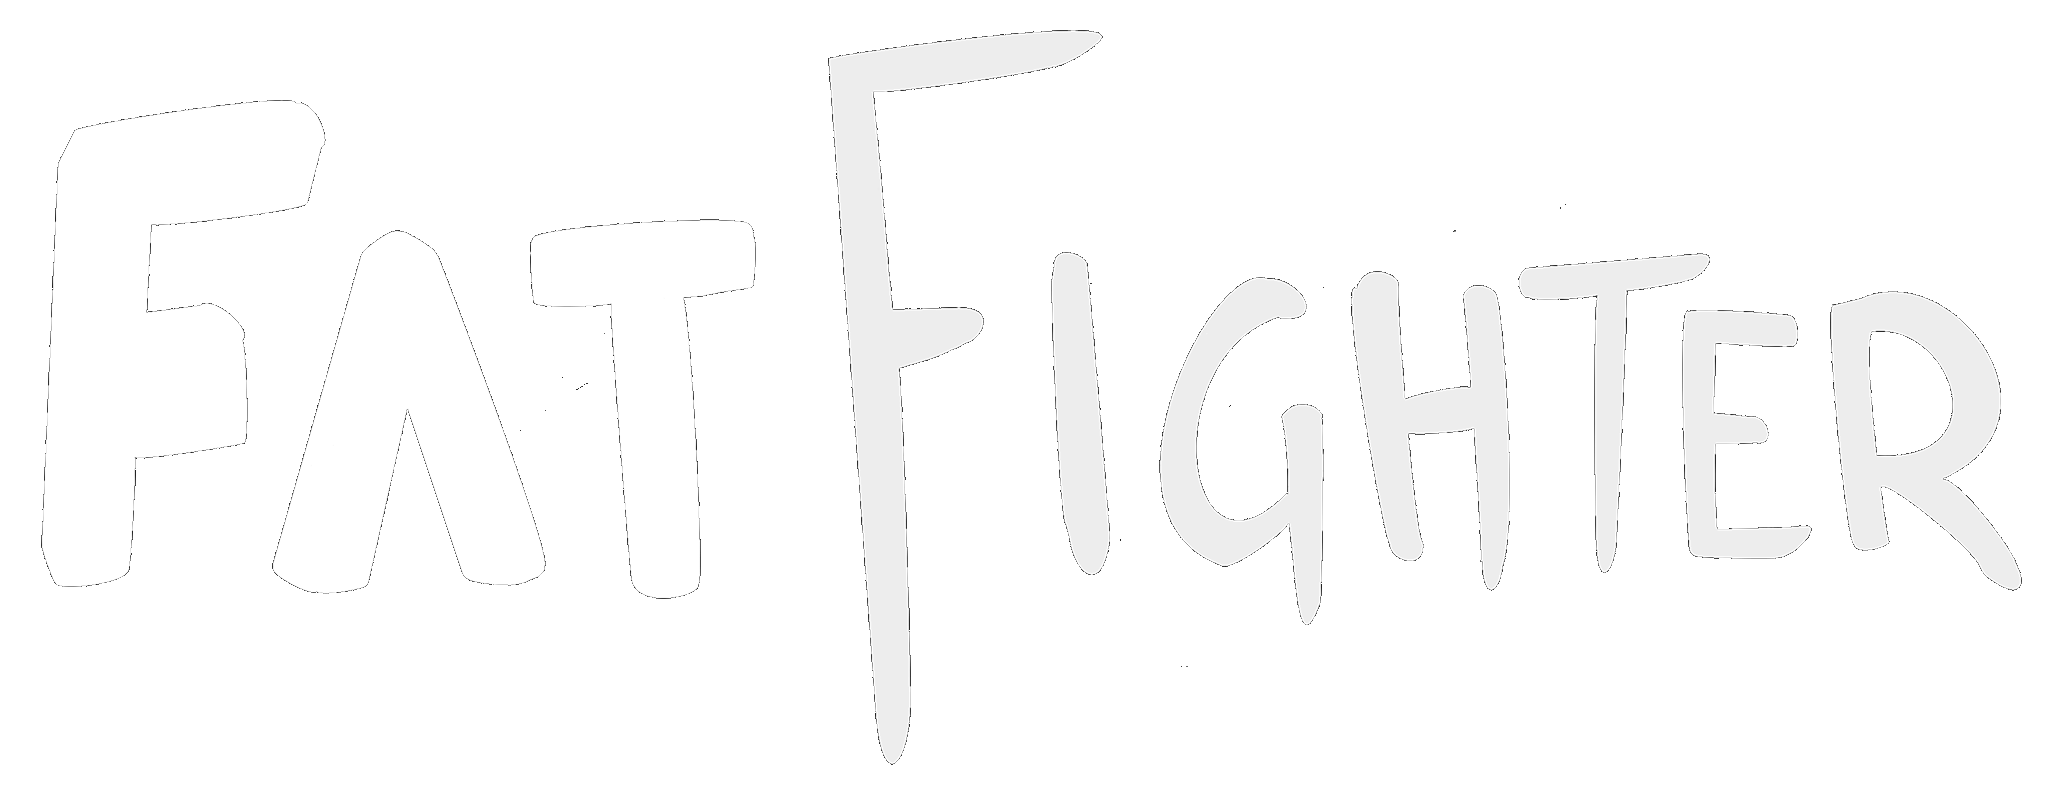 FAT FIGHTER